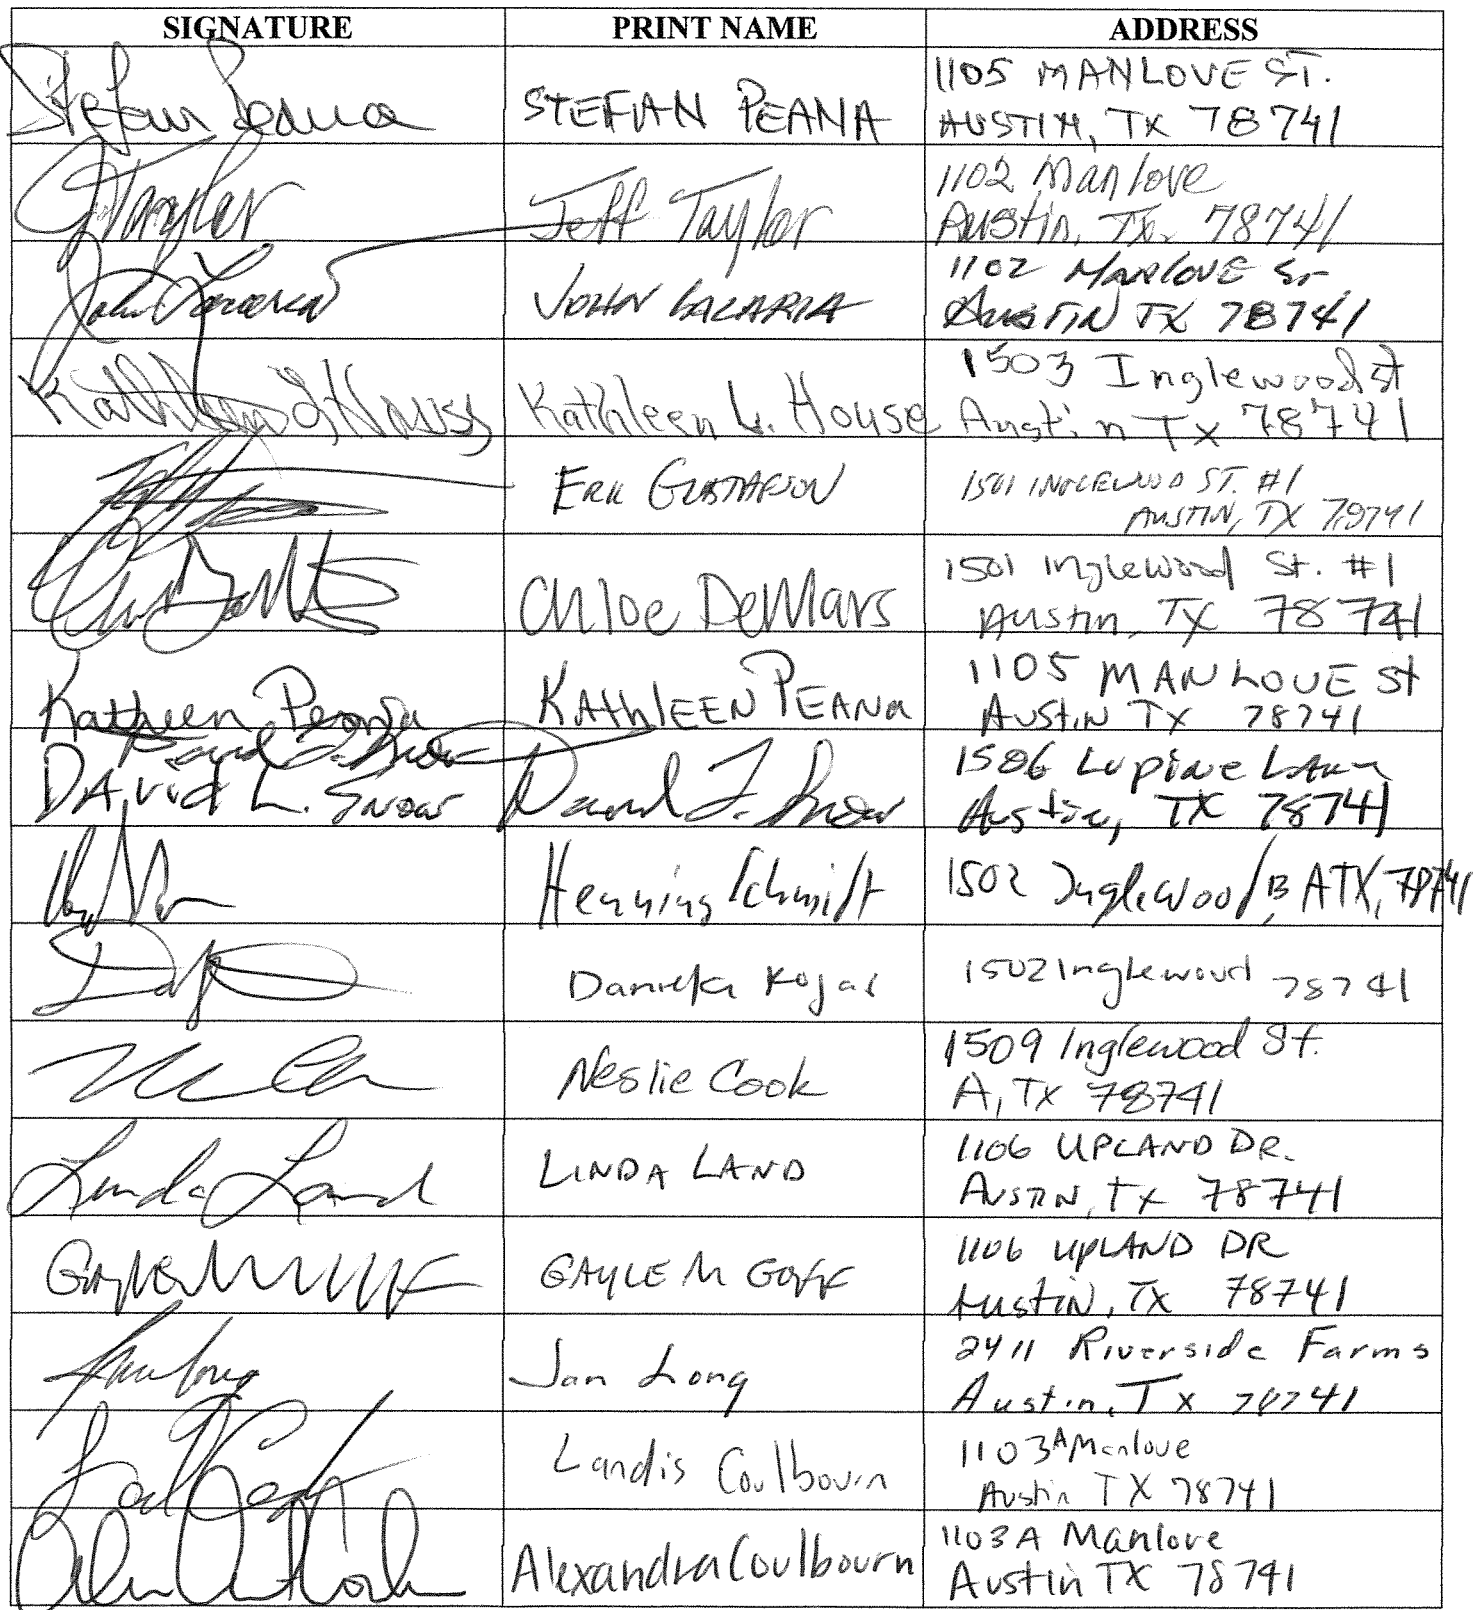 SIGNATURE PRINT NAME ADDRESS
Stefan Peana STEFAN PEANA 1105 MANLOVE ST.
AUSTIN, TX 78741
JTaylor Jeff Taylor 1102 Manlove
Austin, TX. 78741
John Lacaria JOHN LACARIA 1102 MANLOVE St
AUSTIN TX 78741
Kathleen L House Kathleen L. House 1503 Inglewood st
Austin Tx 78741
ERIK GUSTAFSON 1501 INGLEWOOD ST. #1
AUSTIN, TX 78741
Chloe DeMars 1501 Inglewood St. #1
Austin, TX 78741
Kathleen Peana KAthLEEN PEANa 1105 MANLOVE St
AUStiN TX 78741
David L. Snow
DAvid L. Snow David L. Snow 1506 Lupine Lane
Austin, TX 78741
Henning Schmidt 1502 Inglewood B, ATX, 78741
Daniela Kojar 1502 Inglewood 78741
Neslie Cook 1509 Inglewood St.
A, TX 78741
Linda Land LINDA LAND 1106 UPLAND DR.
AUSTIN, Tx 78741
GAYLE M GOFF 1106 UPLAND DR
Austin, TX 78741
Jan Long Jan Long 2411 Riverside Farms
Austin, Tx 78741
Landis Coulbourn 1103 A Manlove
Austin TX 78741
Alexandra Coulbourn 1103 A Manlove
Austin TX 78741